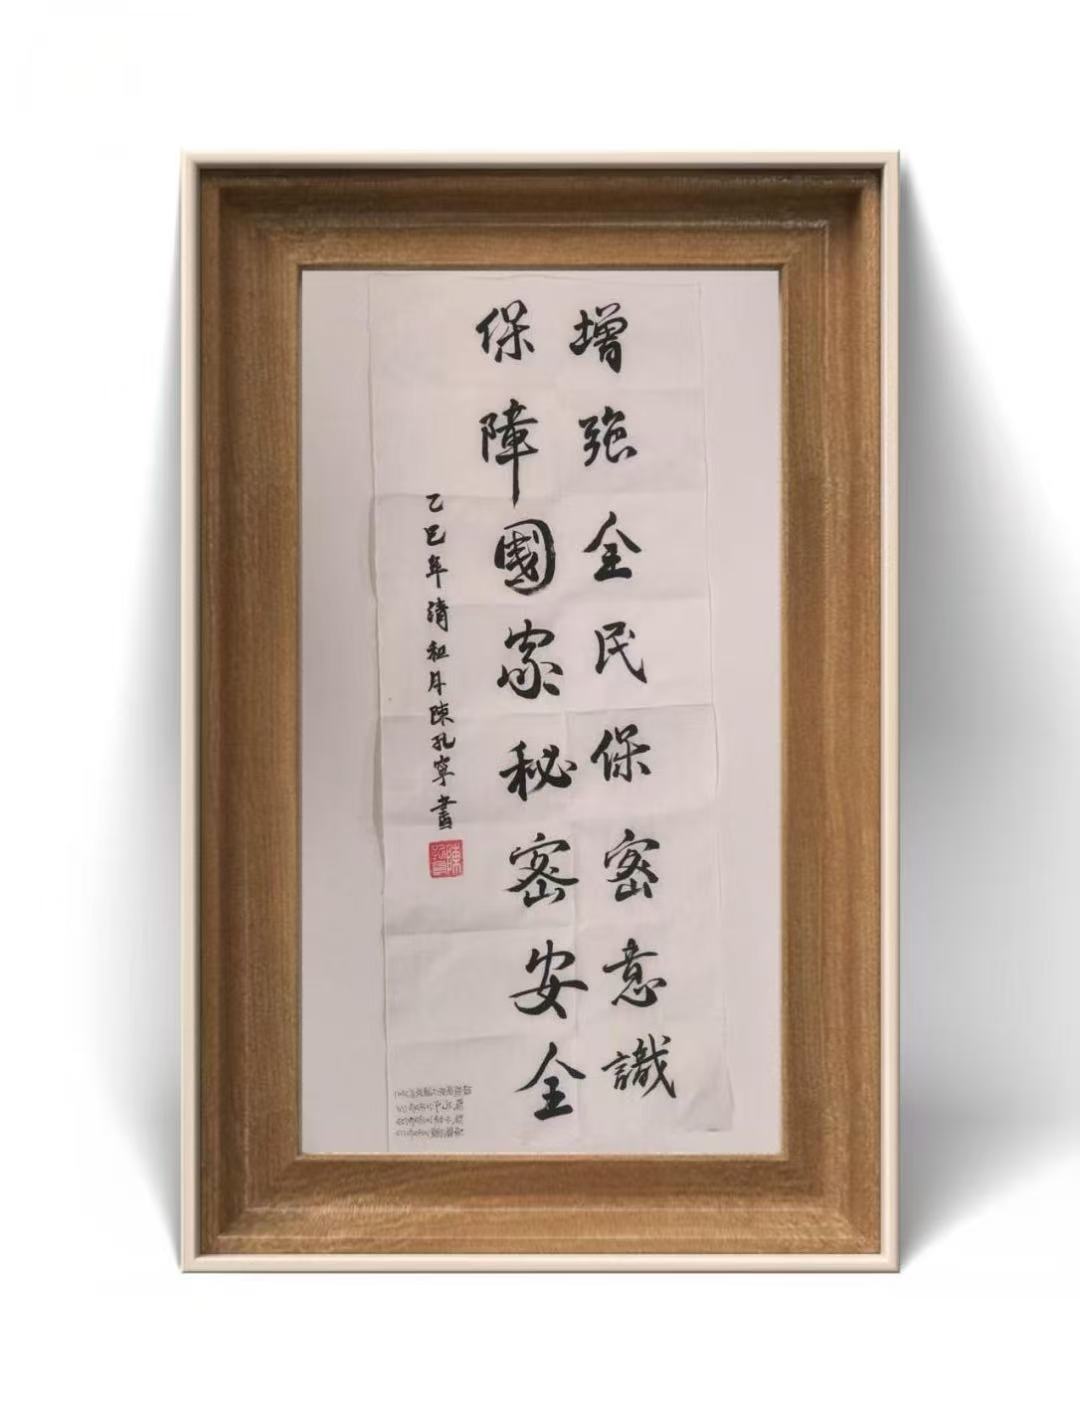 增強全民保密意識
保障國家秘密安全
乙巳年清和月陳孔寧書